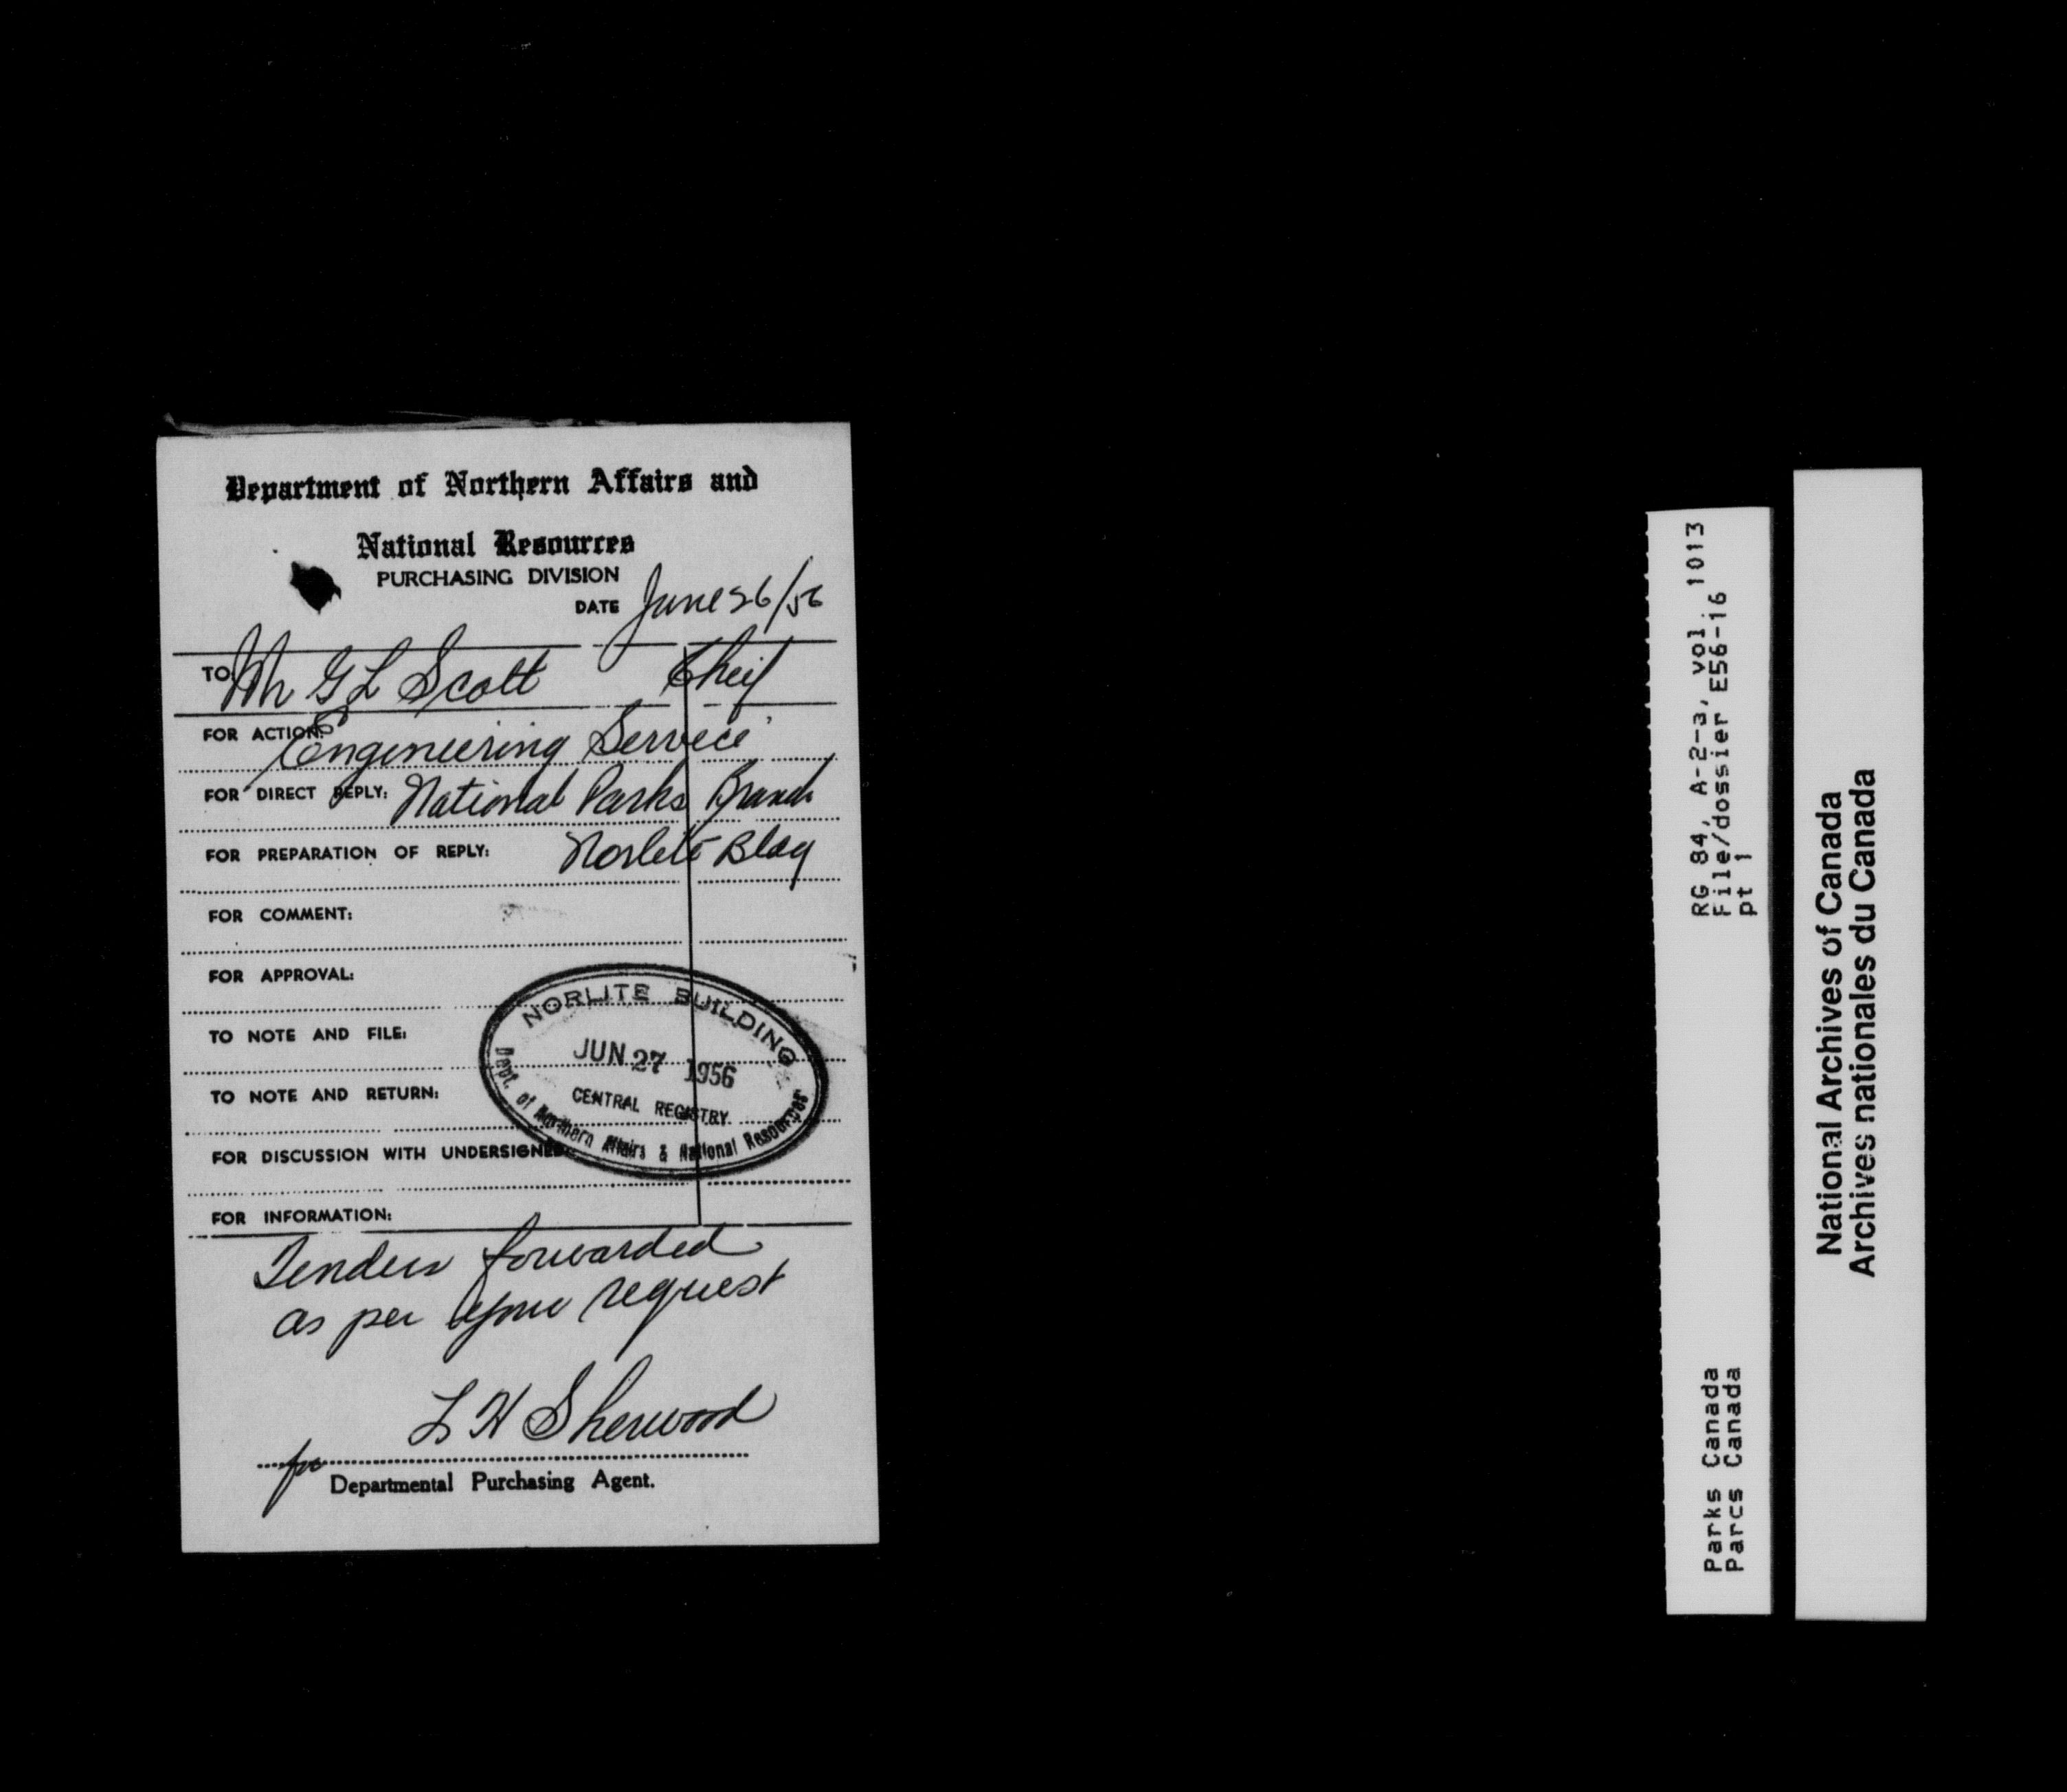 Department of Northern Affairs and
National Resources
PURCHASING DIVISION
DATE June 26/56
TO Mr G L Scott Cheif
FOR ACTION: Engineering Service
FOR DIRECT REPLY: National Parks Branch
FOR PREPARATION OF REPLY: Norlite Bldg
FOR COMMENT:
FOR APPROVAL:
TO NOTE AND FILE:
TO NOTE AND RETURN:
FOR DISCUSSION WITH UNDERSIGNED:
FOR INFORMATION:
NORLITE BUILDING
JUN 27 1956
CENTRAL REGISTRY
Dept. of Northern Affairs & National Resources
Tenders forwarded
as per your request
L H Sherwood
for
Departmental Purchasing Agent.
RG 84, A-2-a, vol. 1013
File/dossier E56-16
pt 1
Parks Canada
Parcs Canada
National Archives of Canada
Archives nationales du Canada